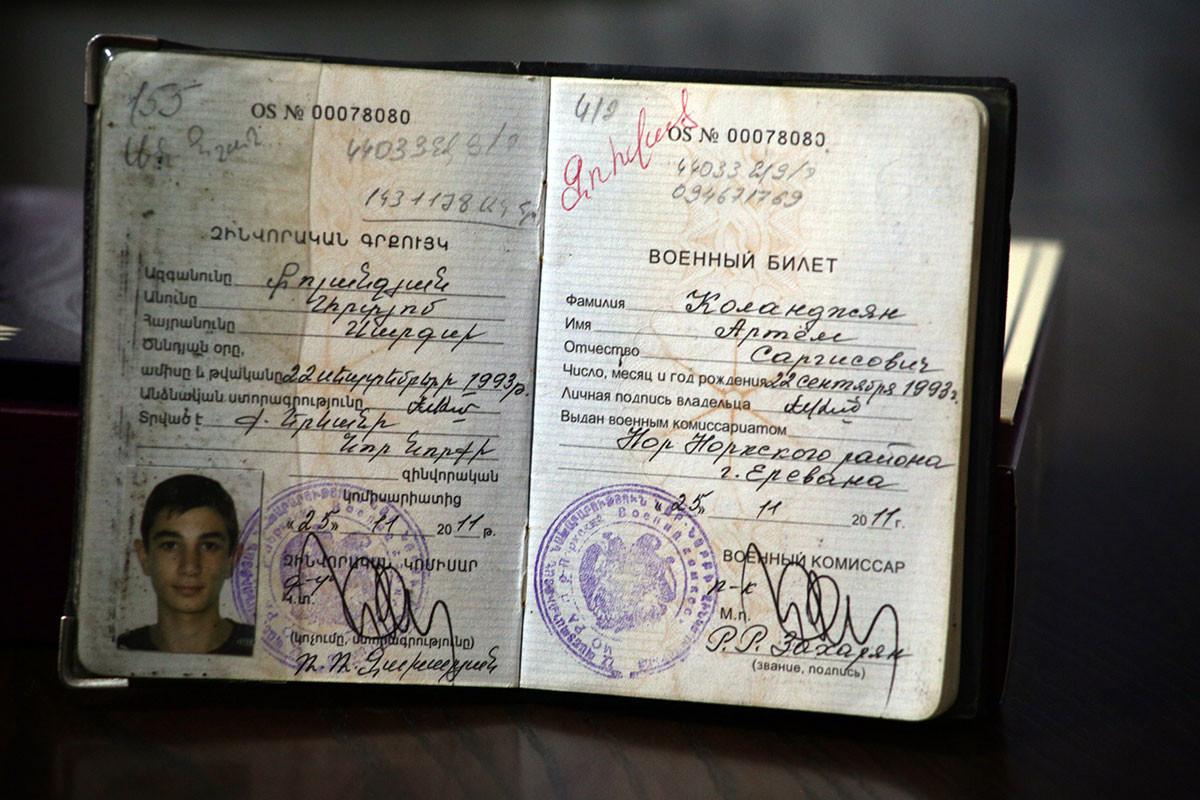 155
OS № 00078080
44033
1431178
ԶԻՆՎՈՐԱԿԱՆ ԳՐՔՈՒՅԿ
Ազգանունը Քոլանջյան
Անունը Արտյոմ
Հայրանունը Սարգսի
Ծննդյան օրը,
ամիսը և թվականը 22 սեպտեմբերի 1993թ.
Անձնական ստորագրությունը
Տրված է ք. Երևանի
Նոր Նորքի
զինվորական
կոմիսարիատից
«25» 11 2011 թ.
ԶԻՆՎՈՐԱԿԱՆ ԿՈՄԻՍԱՐ
գ-պ
Կ.տ.
(կոչումը, ստորագրությունը)
Ռ.Ռ. Զախարյան
4/2
Զոհված
OS № 00078080
44033
094671769
ВОЕННЫЙ БИЛЕТ
Фамилия Коланджян
Имя Артём
Отчество Саргисович
Число, месяц и год рождения 22 сентября 1993г.
Личная подпись владельца
Выдан военным комиссариатом
Нор Норкского района
г. Еревана
«25» 11 2011 г.
ВОЕННЫЙ КОМИССАР
п-к
М.п.
Р.Р. Захарян
(звание, подпись)